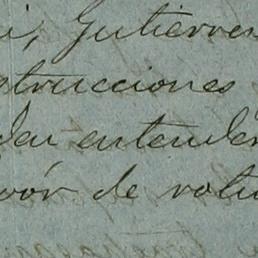 i, Gutierre
strucciones
den entender
vor de votu